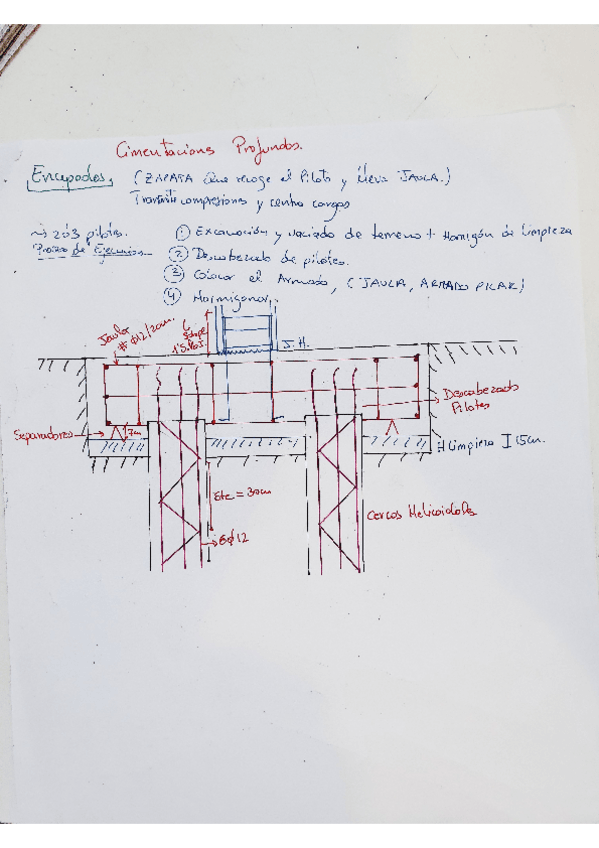 Cimentaciones Profundas.
Encepados, (ZAPATA que recoge el Pilote y lleva JAULA.)
Transmite compresiones y centra cargas
→ 2 ó 3 pilotes.
Proceso de Ejecución
① Excavación y vaciado de terreno + Hormigón de Limpieza
② Descabezado de pilotes.
③ Colocar el Armado, (JAULA, ARMADO PILAR)
④ Hormigonar,
Jaula
# Ø12/20cm.
L
Solape
J.H.
Descabezado
Pilotes
Separadores
7cm
H Limpieza I 15cm.
Ste = 30cm
Cercos Helicoidales
6Ø12